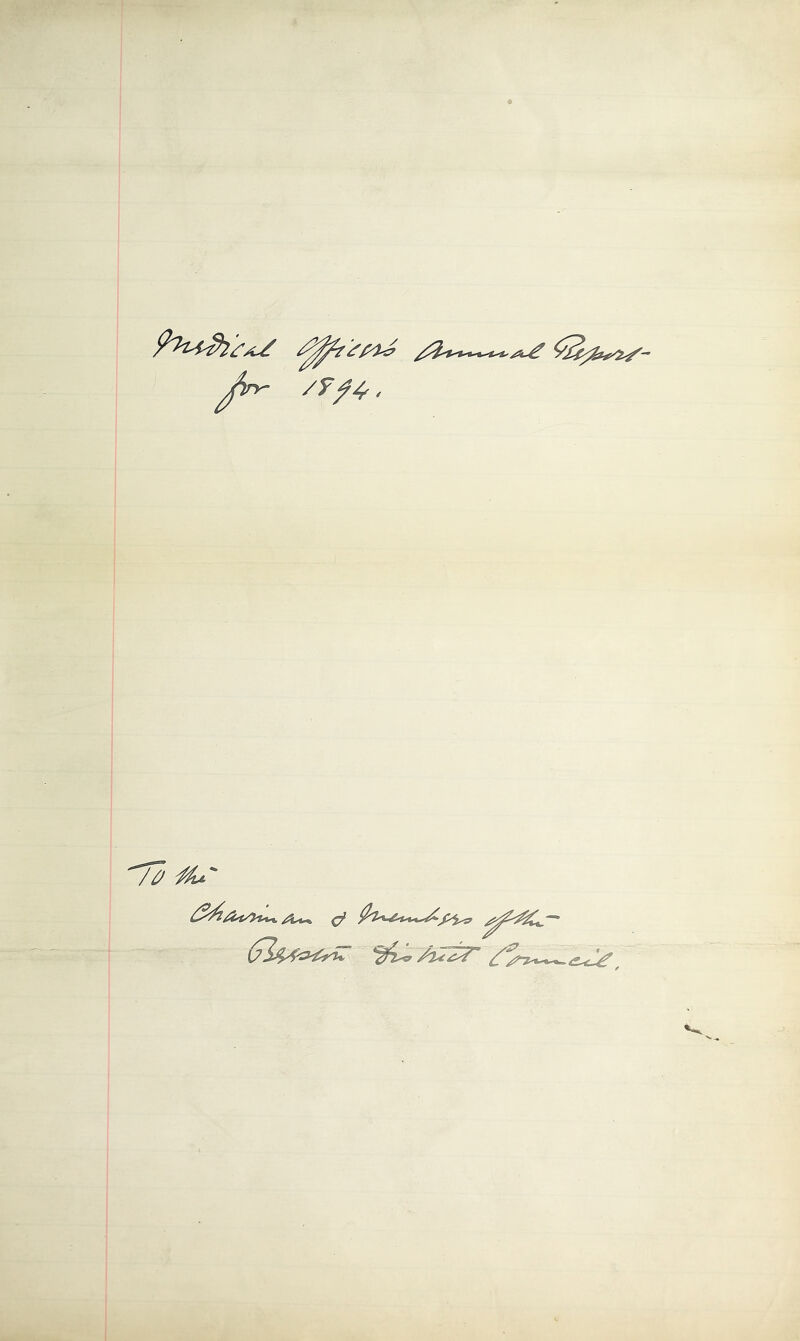 Medical Officer's Annual Report
for 1894.
To the
Chairman & Members of the
District Council.